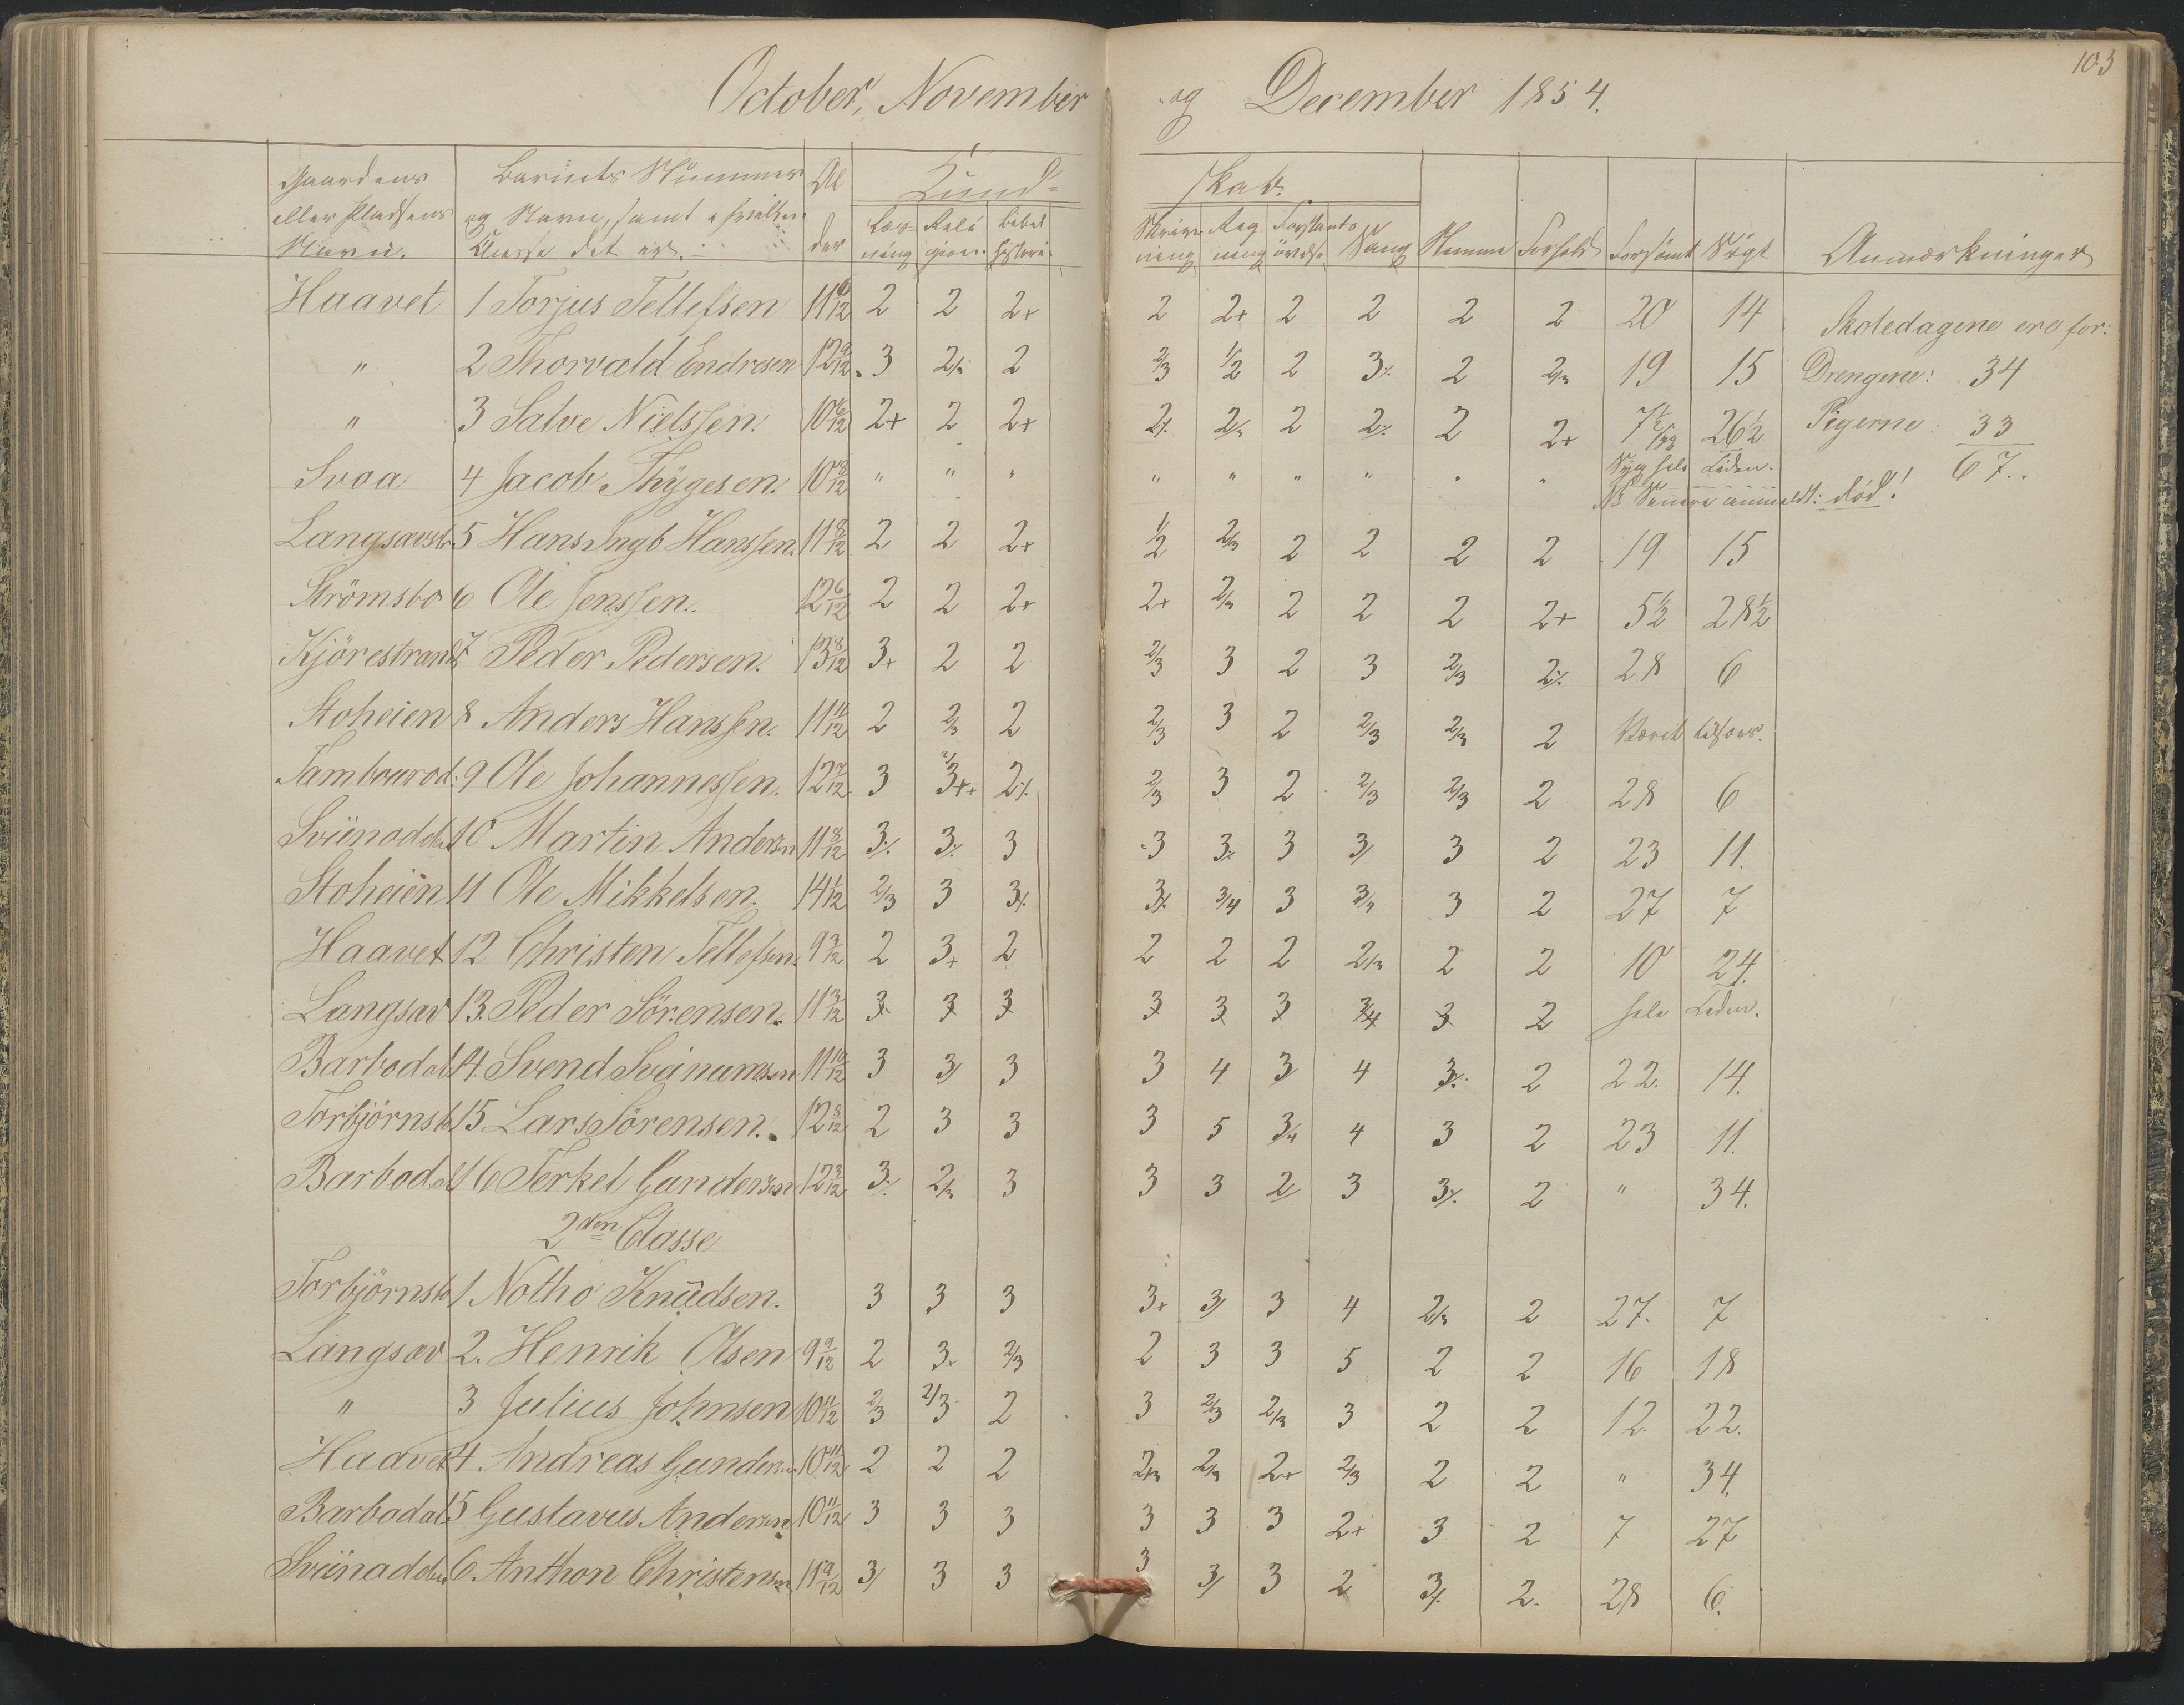 103
October, November og December 1854.
Gaardens eller Pladsens Navn. Barnets Nummer og Navn, samt i hvilken Classe det er. Alder Kundskab. Nemme Forhold Forsömt Sögt Anmærkninger
Læsning Religion Bibelhistorie Skrivning Regning Forstandsövelse Sang
Haavet 1 Torjus Tellefsen 11 6/12 2 2 2+ 2 2+ 2 2 2 2 20 14 Skoledagene ere for:
" 2 Thorvald Endresen 12 9/12 3 2/3 2 2/3 1/2 2 3% 2 2/3 19 15 Drengene: 34
" 3 Salve Nielssen. 10 6/12 2+ 2 2+ 2% 2/3 2 2% 2 2+ 7 1/2 26 1/2 Pigerne: 33
Svaa 4 Jacob Thygesen. 10 8/12 " " " " " " " " " Syg hele Tiden. 67..
NB Senere anmeldt: död!
Langsavstr. 5 Hans Ingb Hanssen. 11 8/12 2 2 2+ 1/2 2/3 2 2 2 2 19 15
Strömsbo 6 Ole Jenssen. 12 6/12 2 2 2+ 2+ 2/3 2 2 2 2+ 5 1/2 28 1/2
Kjörestrand 7 Peder Pedersen. 13 8/12 3+ 2 2 2/3 3 2 3 2/3 2% 28 6
Stoheien 8 Anders Hanssen. 11 11/12 2 2/3 2 2/3 3 2 2/3 2/3 2 Været tilsøes.
Tambourod: 9 Ole Johannessen. 12 7/12 3 3++ 2% 2/3 3 2 2/3 2/3 2 28 6
Sviinodden 10 Martin Andersen 11 8/12 3% 3% 3 3 3% 3 3/ 3 2 23 11.
Stoheien 11 Ole Mikkelsen. 14 1/12 2/3 3 3% 3% 3/4 3 3/4 3 2 27 7
Haavet 12 Christen Tellefsen. 9 3/12 2 3+ 2 2 2 2 2/3 2 2 10 24.
Langsav 13. Peder Sörensen. 11 3/12 3 3 3 3 3 3 3/4 3 2 hele Tiden.
Barbodal 14. Svend Sveinumsen 11 10/12 3 3/ 3 3 4 3/ 4 3% 2 22. 14.
Torbjörnsb 15 Lars Sörensen. 12 8/12 2 3 3 3 5 3/4 4 3 2 23 11.
Barbodal 16 Terkel Gundersen 12 3/12 3% 2/3 3 3 3 2/ 3 3% 2 " 34.
2den Classe
Torbjörnsb 1 Notho Knudsen. 3 3 3 3+ 3/ 3 4 2/3 2 27. 7
Langsav 2. Henrik Olsen 9 9/12 2 3+ 2/3 2 3 3 5 2 2 16 18
" 3 Julius Johnsen 10 11/12 2/3 2/3 2 3 2/3 2/3 3 2 2 12. 22.
Haavet 4. Andreas Gundersen 10 11/12 2 2 2 2/3 2/3 2+ 2/3 2 2 " 34.
Barbodal 5 Gustavus Andersen 10 11/12 3 3 3 3 3 3 2+ 3 2 7 27
Sviinadden 6. Anthon Christensen 11 9/12 3/ 3 3 3 3/ 3 2 3% 2. 28 6.